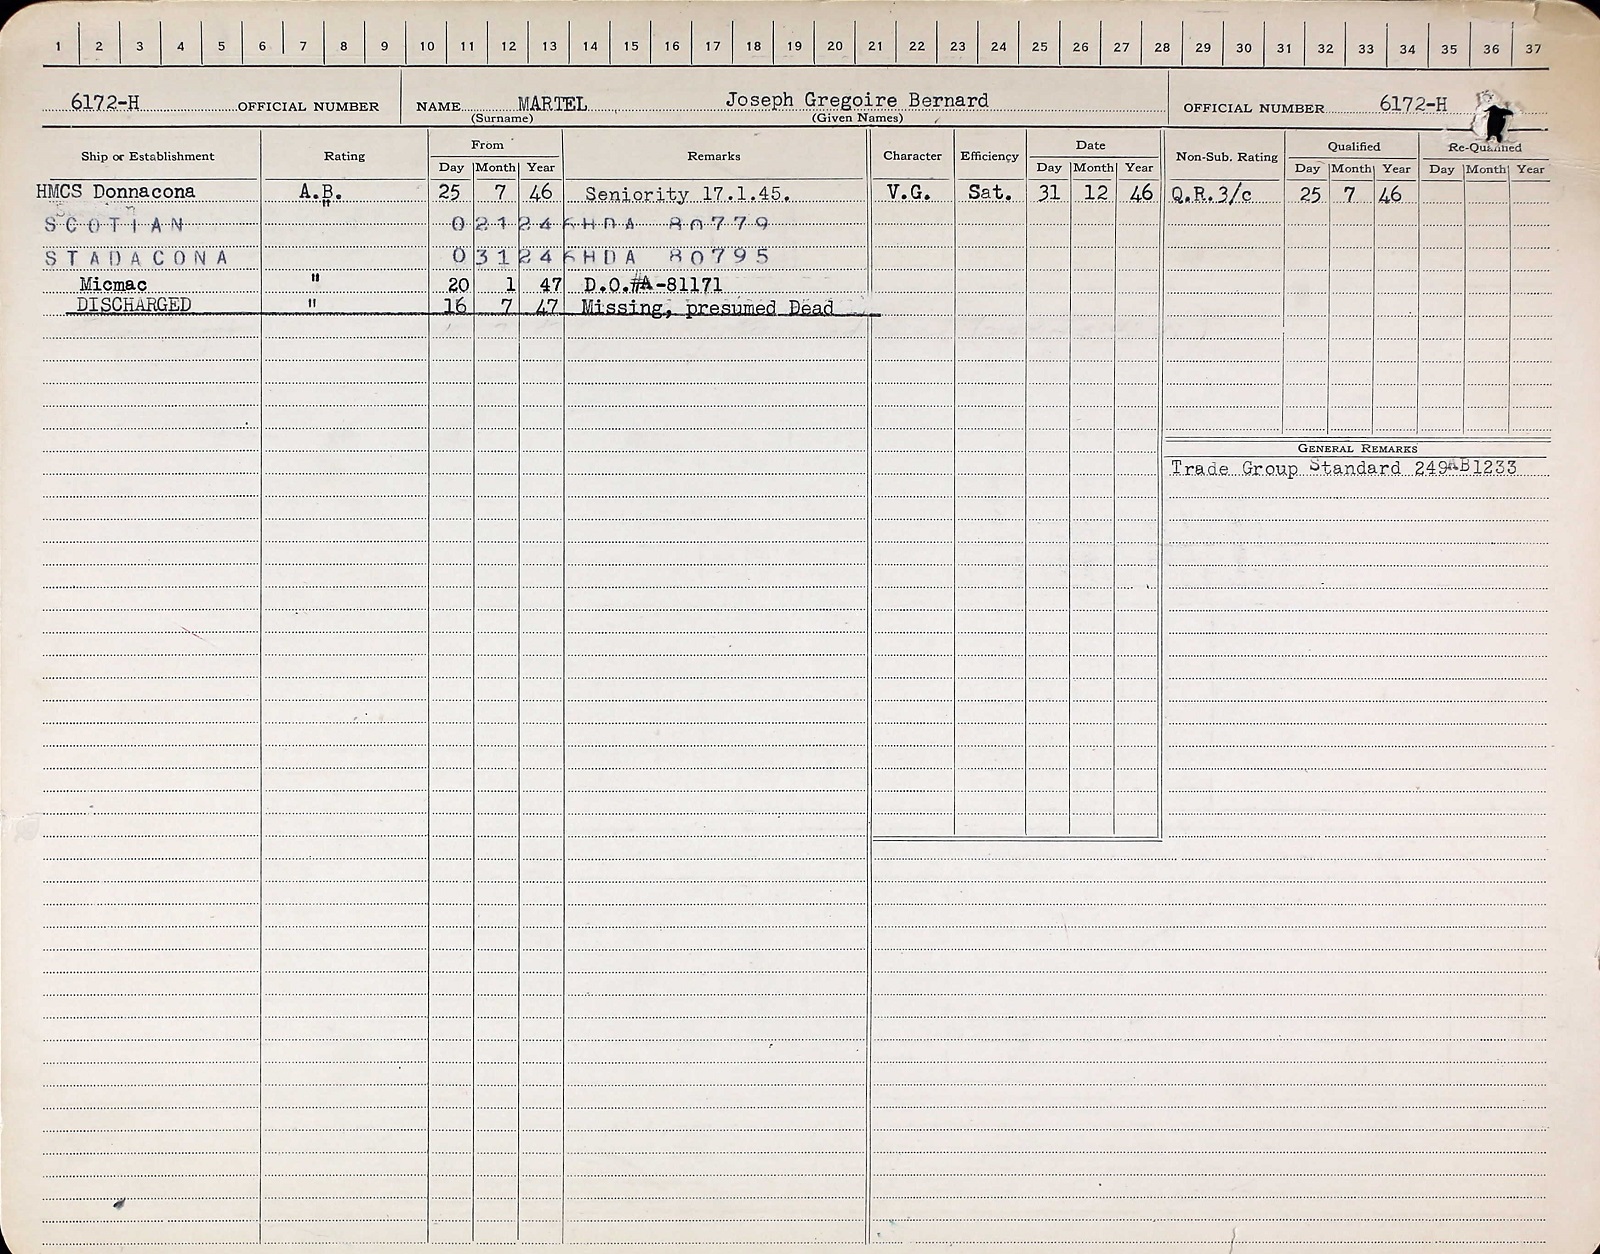 1 2 3 4 5 6 7 8 9 10 11 12 13 14 15 16 17 18 19 20 21 22 23 24 25 26 27 28 29 30 31 32 33 34 35 36 37
6172-H OFFICIAL NUMBER NAME MARTEL Joseph Gregoire Bernard OFFICIAL NUMBER 6172-H
(Surname) (Given Names)
Ship or Establishment Rating From Remarks Character Efficiency Date Non-Sub. Rating Qualified Re-Qualified
Day Month Year Day Month Year Day Month Year Day Month Year
HMCS Donnacona A.B. 25 7 46 Seniority 17.1.45. V.G. Sat. 31 12 46 Q.R.3/c 25 7 46
SCOTIAN " 021246HDA 80779
STADACONA 031246HDA 80795
Micmac " 20 1 47 D.O.#A-81171
DISCHARGED " 16 7 47 Missing, presumed Dead
GENERAL REMARKS
Trade Group Standard 249AB1233